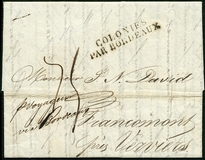 COLONIES
PAR BORDEAUX
Monsieur J. N. David
p Voyageur
via Bordeaux
Francomont
près Verviers